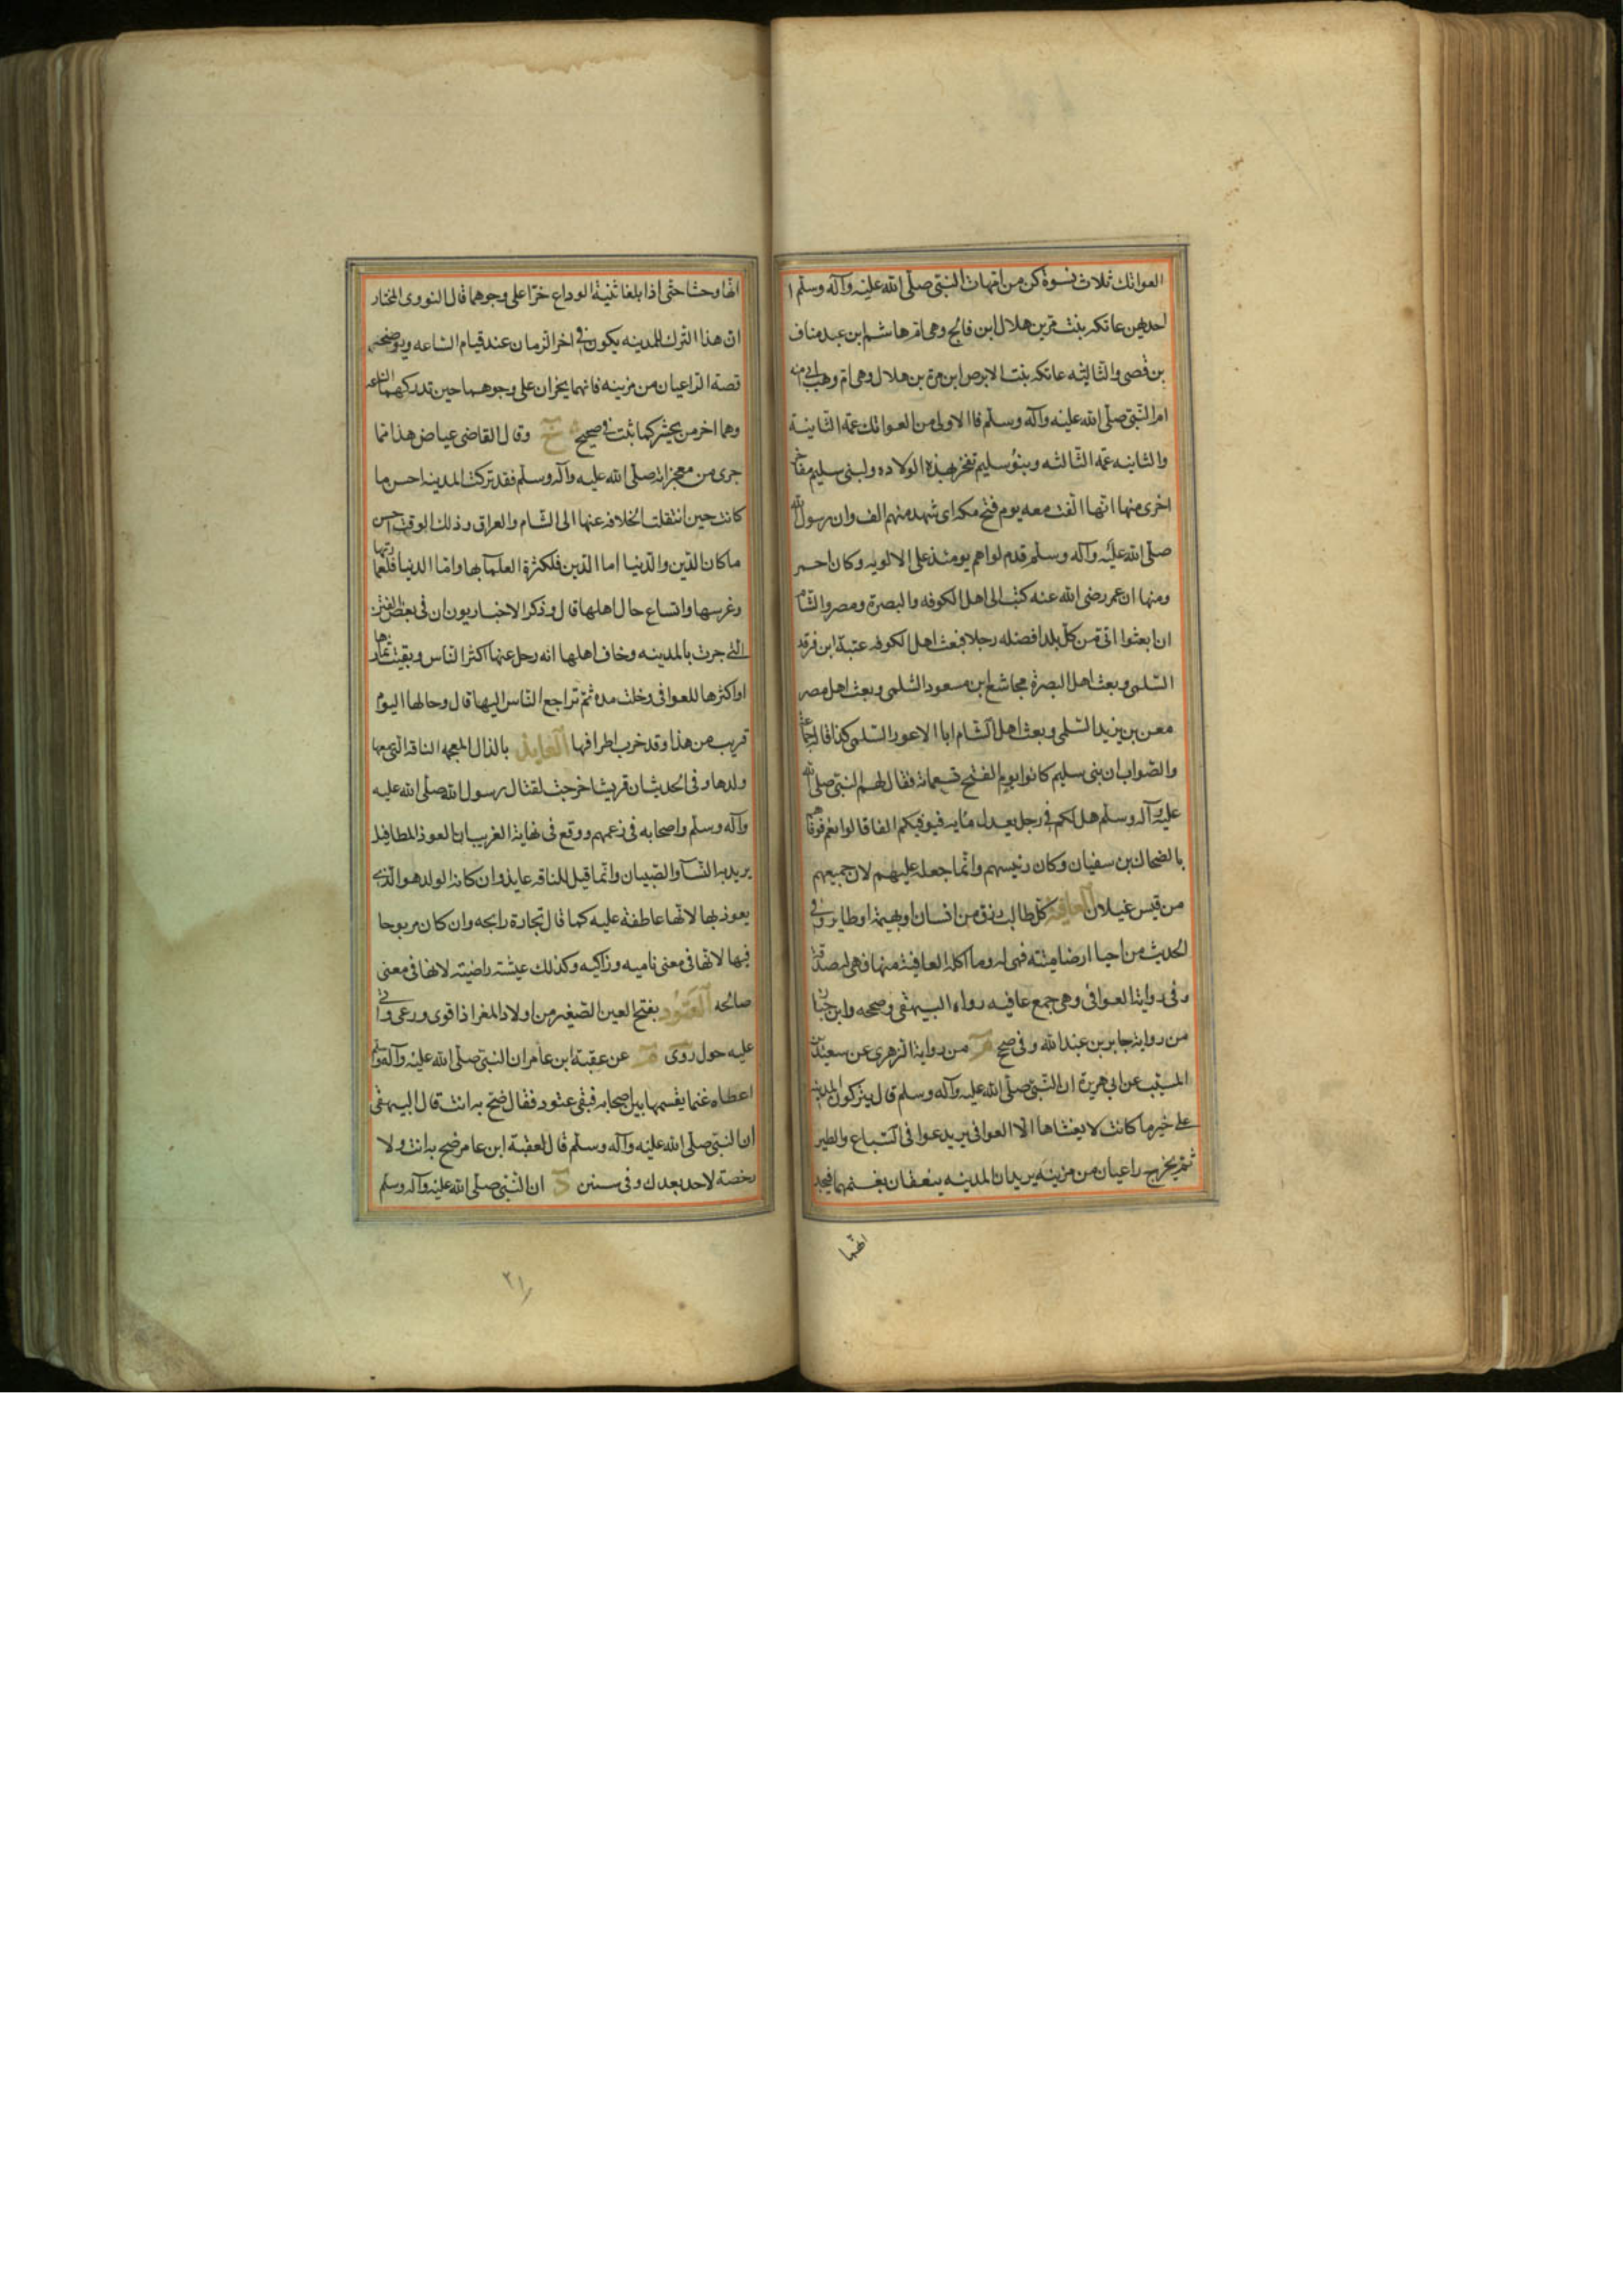 العواتك ثلاث نسوة كن من امهات النبى صلى الله عليه وآله وسلم ا
احديهن عاتكه بنت مرة بن هلال ابن فالج وهى ام هاشم ابن عبد مناف
بن قصى والثانيه عاتكه بنت الابرص ابن مرة بن هلال وهى ام وهب ابى امنه
ام النبى صلى الله عليه وآله وسلم فاالاولى من العواتك عمة الثانية
والثانيه عمة الثالثه وبنو سليم تفخر بهذه الولاده ولبنى سليم مفاخر
اخرى منها انها الفت معه يوم فتح مكه اى شهد منهم الف وان رسول الله
صلى الله عليه وآله وسلم قدم لواهم يومئذ على الالويه وكان احمر
ومنها ان عمر رضى الله عنه كتب الى اهل الكوفه والبصرة ومصر والشام
ان ابعثوا الى من كل بلد افضله رجلا فبعث اهل الكوفه عتبة ابن فرقد
السلمى وبعث اهل البصرة مجاشع ابن مسعود السلمى وبعث اهل مصر
معن بن يزيد السلمى وبعث اهل الشام ابا الاعور السلمى كذا قال جماعة
والصواب ان بنى سليم كانوا يوم الفتح تسعمائة فقال لهم النبى صلى الله
عليه وآله وسلم هل لكم فى رجل يعدل مايه فيوفيكم الفا قالوا نعم فوفاهم
بالضحاك بن سفيان وكان رئيسهم وانما جعله عليهم لان جميعهم
من قيس غيلان العافية كل طالب رزق من انسان او بهيمة او طاير وفى
الحديث من احيا ارضا ميتة فهى له وما اكله العافية منها فهى له صدقة
وفى رواية العوافى وهى جمع عافيه رواه البيهقى وصححه وابن حبان
من رواية جابر بن عبد الله وفى صح م من رواية الزهرى عن سعيد بن
المسيب عن ابى هريرة ان النبى صلى الله عليه وآله وسلم قال يتركون المدينه
على خير ما كانت لا يغشاها الا العوافى يريد عوافى السباع والطير
ثم يخرج راعيان من مزينه يريدان المدينه ينعقان بغنمهما فيجد
انها
انها وحشا حتى اذا بلغا ثنية الوداع خرا على وجوهما قال النووى المختار
ان هذا الترك للمدينه يكون فى اخر الزمان عند قيام الساعه ويوضحه
قصة الراعيان من مزينه فانهما يخران على وجوههما حين تدركهما الساعه
وهما اخر من يحشر كما ثبت فى صحيح خ وقال القاضى عياض هذا مما
جرى من معجزاته صلى الله عليه وآله وسلم فقد تركت المدينه احسن ما
كانت حين انتقلت الخلافه عنها الى الشام والعراق وذلك الوقت احسن
ما كان الدين والدنيا اما الدين فلكثرة العلمآ بها واما الدنيا فلعمارتها
وغرسها واتساع حال اهلها قال وذكر الاخباريون ان فى بعض الفتن
التى جرت بالمدينه وخاف اهلها انه رحل عنها اكثر الناس وبقيت ثمارها
او اكثرها للعوافى وخلت مده ثم تراجع الناس اليها قال وحالها اليوم
قريب من هذا وقد خرب اطرافها العايذ بالذال المعجمه الناقه التى معها
ولدها وفى الحديث ان قريشا خرجت لقتال رسول الله صلى الله عليه
وآله وسلم واصحابه فى زعمهم ووقع فى نهاية الغريب ان العوذ المطافيل
يريد به النسآ والصبيان وانما قيل للناقه عايذ وان كان الولد هو الذى
يعوذ بها لانها عاطفة عليه كما قال تجارة رابحه وان كان مربوحا
فيها لانها فى معنى ناميه وزاكيه وكذلك عيشة راضية لانها فى معنى
صالحه العتود بفتح العين الصغير من اولاد المغز اذا قوى ورعى واتى
عليه حول روى م عن عقبة ابن عامر ان النبى صلى الله عليه وآله وسلم
اعطاه غنما يقسمها بين اصحابه فبقى عتود فقال ضح به انت قال البيهقى
ان النبى صلى الله عليه وآله وسلم قال لعقبة ابن عامر ضح به انت ولا
رخصة لاحد بعدك وفى سنن د ان النبى صلى الله عليه وآله وسلم
٢١